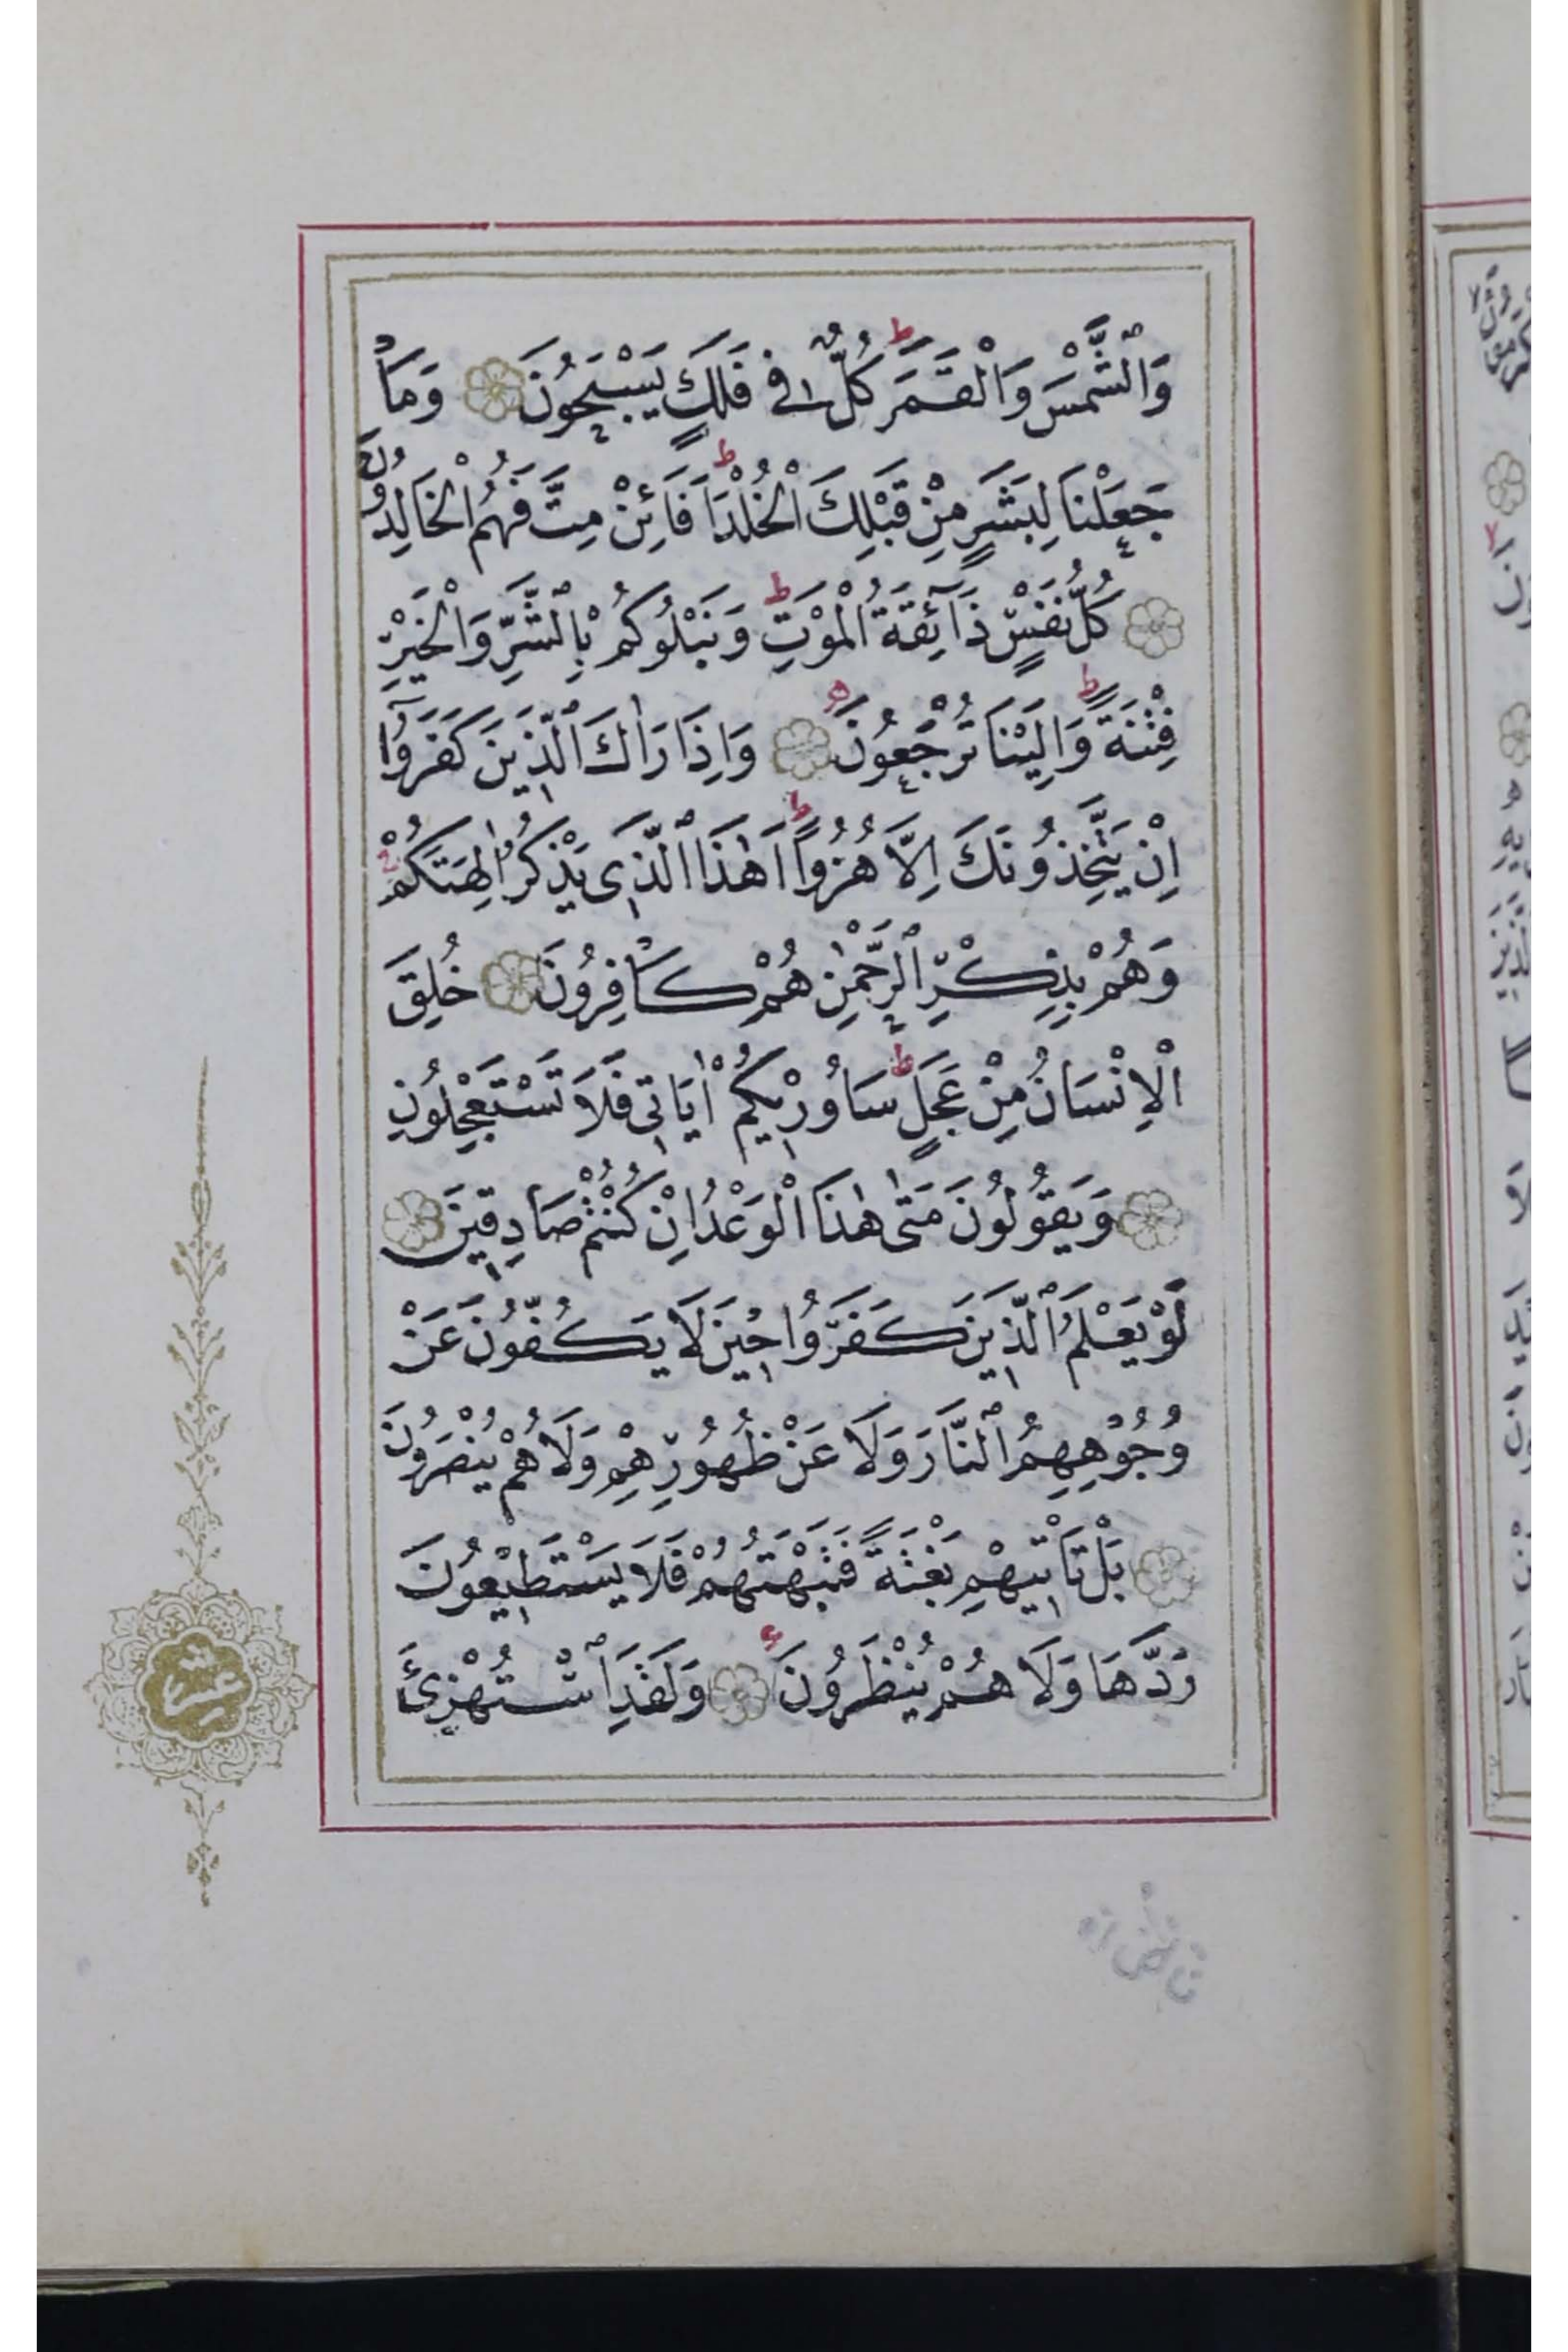 وَالشَّمْسَ وَالْقَمَرَ كُلٌّ فِي فَلَكٍ يَسْبَحُونَ وَمَا
جَعَلْنَا لِبَشَرٍ مِنْ قَبْلِكَ الْخُلْدَ اَفَائِنْ مِتَّ فَهُمُ الْخَالِدُونَ
كُلُّ نَفْسٍ ذَائِقَةُ الْمَوْتِ وَنَبْلُوكُمْ بِالشَّرِّ وَالْخَيْرِ
فِتْنَةً وَاِلَيْنَا تُرْجَعُونَ وَاِذَا رَاٰكَ الَّذِينَ كَفَرُوا
اِنْ يَتَّخِذُونَكَ اِلَّا هُزُوًا اَهٰذَا الَّذِى يَذْكُرُ اٰلِهَتَكُمْ
وَهُمْ بِذِكْرِ الرَّحْمٰنِ هُمْ كَافِرُونَ خُلِقَ
الْاِنْسَانُ مِنْ عَجَلٍ سَاُورِيكُمْ اٰيَاتِى فَلَا تَسْتَعْجِلُونِ
وَيَقُولُونَ مَتٰى هٰذَا الْوَعْدُ اِنْ كُنْتُمْ صَادِقِينَ
لَوْ يَعْلَمُ الَّذِينَ كَفَرُوا حِينَ لَا يَكُفُّونَ عَنْ
وُجُوهِهِمُ النَّارَ وَلَا عَنْ ظُهُورِهِمْ وَلَا هُمْ يُنْصَرُونَ
بَلْ تَاْتِيهِمْ بَغْتَةً فَتَبْهَتُهُمْ فَلَا يَسْتَطِيعُونَ
رَدَّهَا وَلَا هُمْ يُنْظَرُونَ وَلَقَدِ اسْتُهْزِئَ